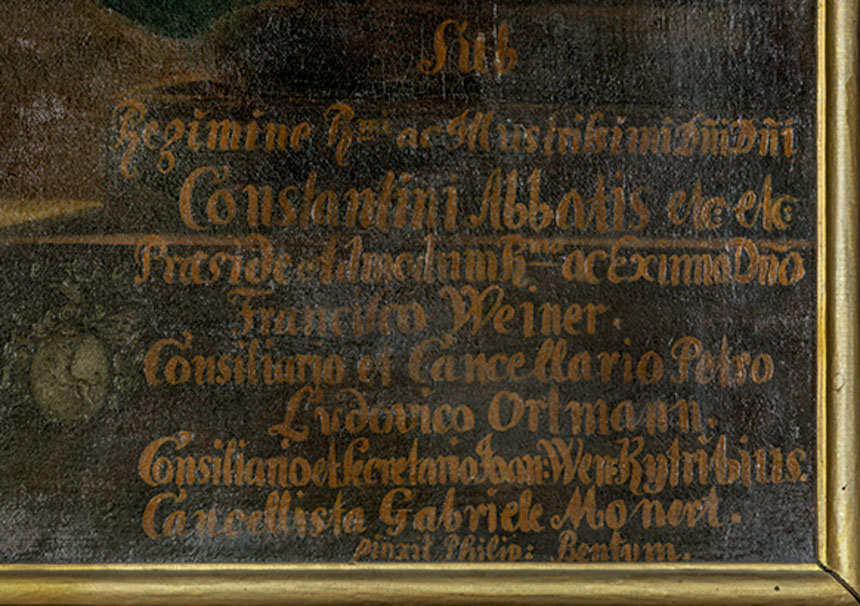 Sub
Regimine Rmi ac Illustrissimi Dñi Dñi
Constantini Abbatis etc etc
Præside Admodum R ac Eximio Dño
Francisco Weiner.
Consiliario et Cancellario Petro
Ludovico Ortmann.
Consiliario et Secretario Joan: Wen:
Cancellista Gabriele Monert.
pinxit Philip: Bentum.